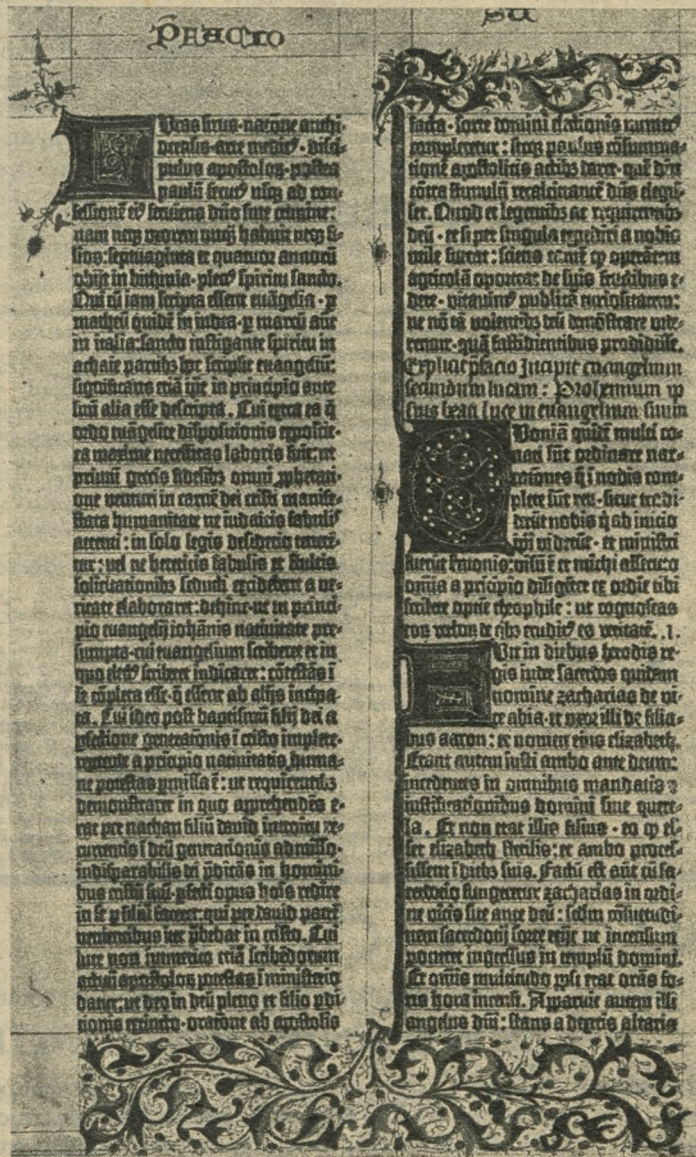 Prefacio
Lucas sirus · natione anthi-
ocensis · arte medicus · disci-
pulus apostolorum · postea
paulū secutus usq; ad con-
fessionē eius serviens dño sine crimine:
nam neq; uxorem unq; habuit neq; fi-
lios: septuaginta et quatuor annorū
obijt in bithinia · plenus spiritu sancto.
Qui cū iam scripta essent euāgelia · p
matheū quidē in iudea · p marcū aūt
in italia: sancto instigante spiritu in
achaie partibus hoc scripsit evangeliū:
significans etiā ipse in principio ante
suū alia esse descripta. Cui extra ea q̄
ordo euāgelice dispositionis exposcit ·
ea maxime necessitas laboris fuit: ut
primū grecis fidelibus omni prophetati-
one venturi in carnē dei cristi manife-
stata humanitate ne iudaicis fabulis
attenti: in solo legis desiderio tenerē-
tur: vel ne hereticis fabulis et stultis
solicitationibus seducti exciderent a ve-
ritate elaboraret: dehinc · ut in princi-
pio euangelij iohānis nativitate pre-
sumpta · cui euangelium scriberet et in
quo electus scriberet indicaret: cōtestās ī
se cōpleta esse · q̄ essent ab alijs incho-
ata. Cui ideo post baptismū filij dei a
pfectione generationis ī cristo implete ·
repetende a pricipio nativitatis huma-
ne potestas pmissa ē: ut requirentibus
demonstraret in quo apprehendēs e-
rat per nathan filiū david introitu re-
currentis ī deū generationis admisso ·
indisparabilis dei pdicās in homini-
bus cristū suū · pfecti opus hoīs redire
in se p filiū faceret: qui per david patrē
venientibus iter pbebat in cristo. Cui
luce non immerito etiā scribēdorum
actuū apostolorum potestas ī ministerio
datur: ut deo in deū pleno et filio pdi-
tionis extincto · oratione ab apostolis
facta · sorte domini electionis numerus
compleretur: sicq; paulus cōsumma-
tionē apostolicis actibus daret · quē diu
cōtra stimulū recalcitrantē dñs elegis-
set. Quod et legentibus ac requirentibus
deū · etsi per singula expediri a nobis
utile fuerat: sciens tamē qp operātem
agricolā oporteat de suis fructibus e-
dere · vitavimus publicā curiositatem:
ne nō tā volentibus deū demōstrare vide-
remur · quā fastidientibus prodidisse.
Explicit pfacio Incipit euangelium
secundum lucam: Prohemium ip
sius beati luce in euangelium suum
Quoniā quidē multi co-
nati sūt ordinare nar-
rationes q̄ ī nobis com-
plete sūt rerum · sicut tradi-
derūt nobis q̄ ab inicio
ipi viderūt · et ministri
fuerūt sermonis: visū est et michi assecuto
omnia a pricipio diligēter ex ordīe tibi
scribere optīe theophile: ut cognoscas
eorum verborum de quibus eruditus es veritatē. .I.
Fuit in diebus herodis re-
gis iudee sacerdos quidam
nomine zacharias de vi-
ce abia · et uxor illi de filia-
bus aaron: et nomen eius elizabeth.
Erant autem iusti ambo ante deum:
incedentes in omnibus mandatis et
iustificationibus domini sine quere-
la. Et non erat illis filius · eo qp es-
set elizabeth sterilis: et ambo proces-
sissent ī diebus suis. Factū est aūt cū sa-
cerdotio fungeretur zacharias in ordi-
ne vicis sue ante deū: scdm cōsuetudi-
nem sacerdotij sorte exijt ut incensum
poneret ingressus in templū domini.
Et omnis multitudo ppli erat orās fo-
ris hora incensi. Apparuit autem illi
angelus dñi: stans a dextris altaris